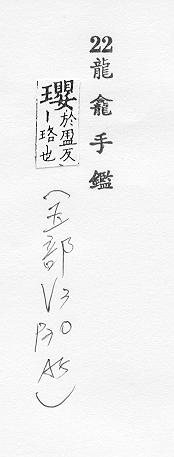 22 龍龕手鑑
瓔於盈反
丨珞也
(玉部 V3
P70
A5)